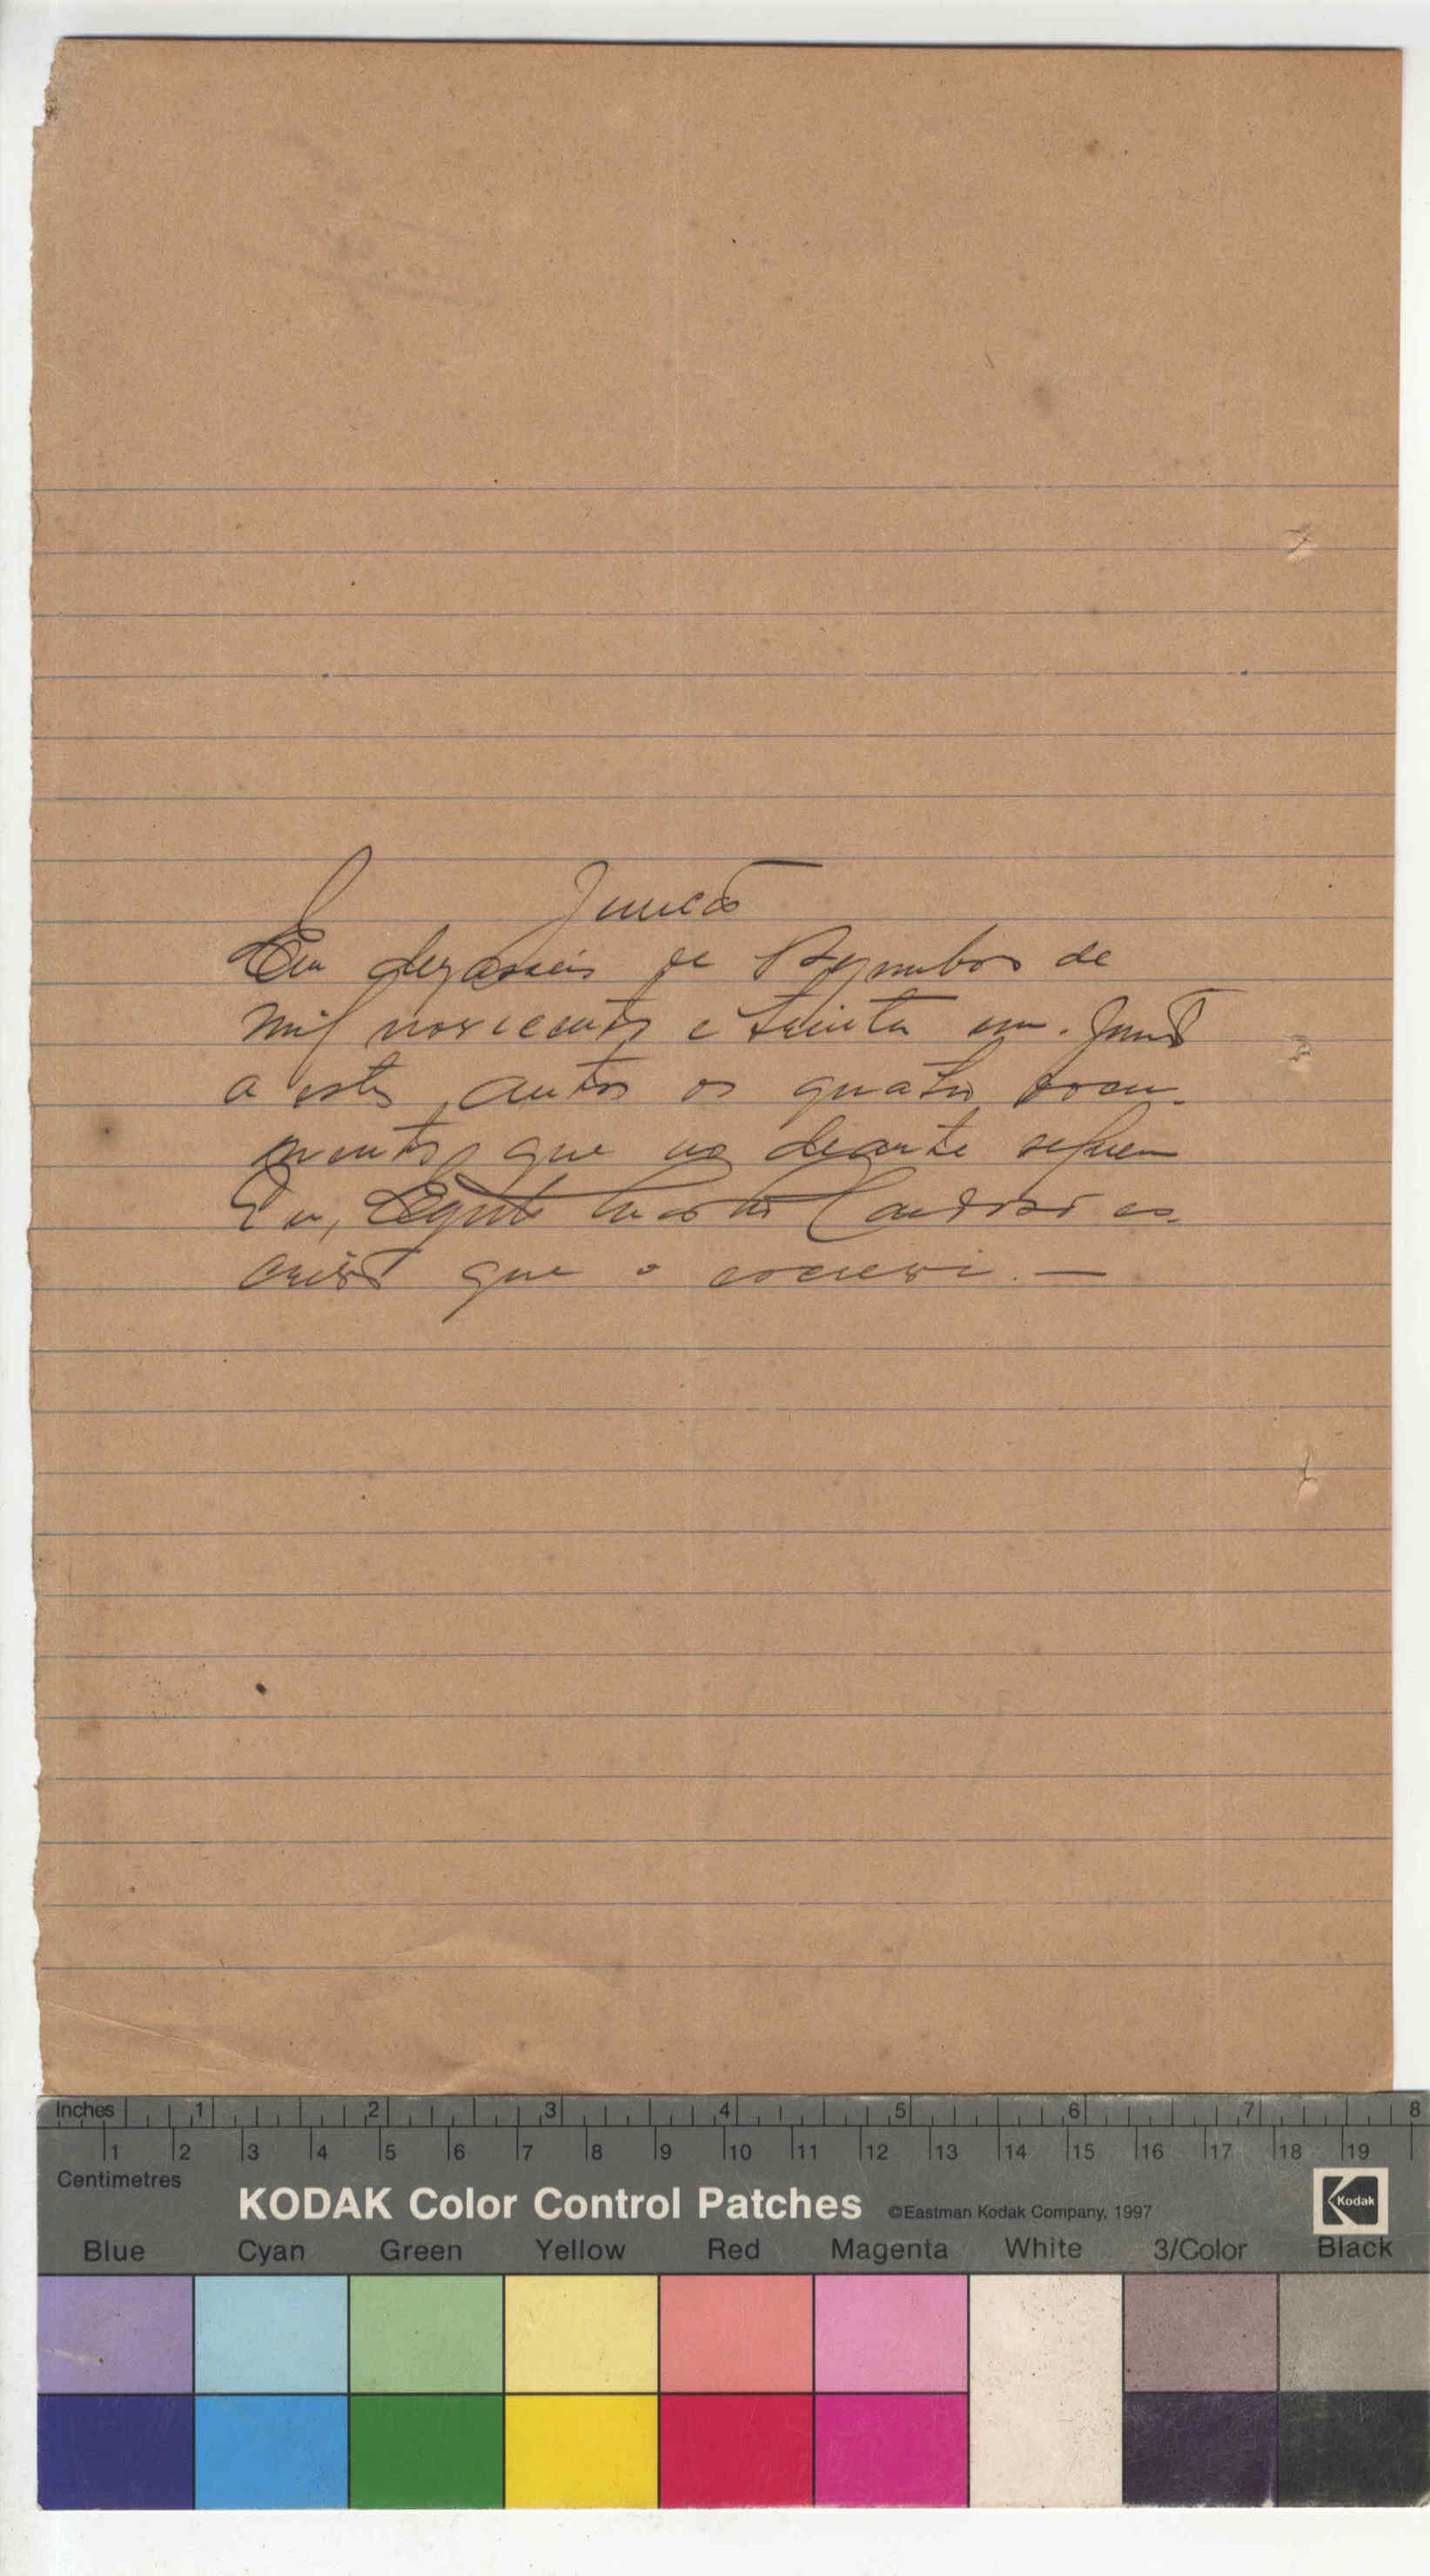 Juncão
Em dezasseis de de
mil novecentos e trinta um. Junto
a estes autos os quatro docu-
mentos que ao deante seguem
Eu, Cardoso es-
crivão que o escrevi. —
Inches 1 2 3 4 5 6 7 8
1 2 3 4 5 6 7 8 9 10 11 12 13 14 15 16 17 18 19
Centimetres
KODAK Color Control Patches ©Eastman Kodak Company, 1997 Kodak
Blue Cyan Green Yellow Red Magenta White 3/Color Black